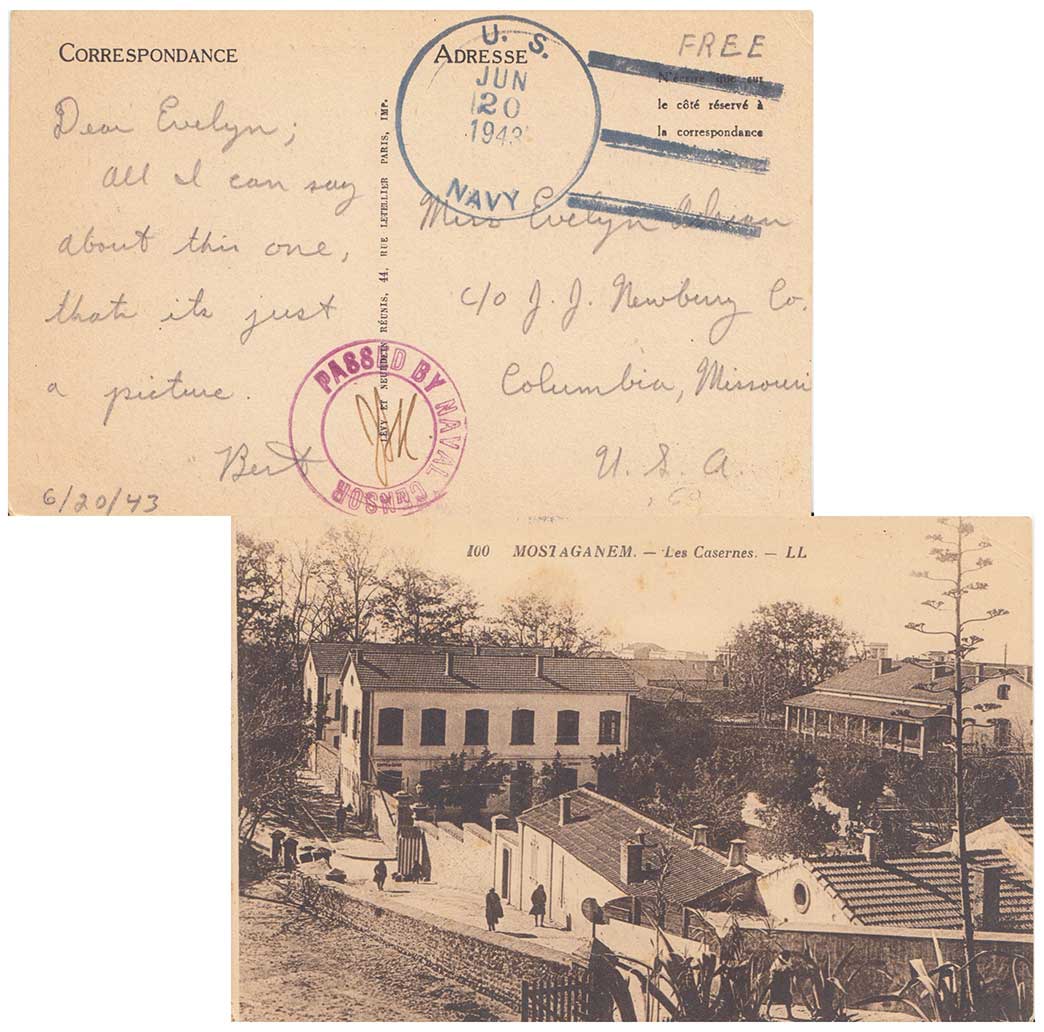 CORRESPONDANCE
ADRESSE
U. S.
JUN
20
1943
NAVY
FREE
N'écrire que sur
le côté réservé à
la correspondance
Dear Evelyn;
All I can say
about this one,
thats its just
a picture.
Bert
6/20/43
LÉVY ET NEURDEIN RÉUNIS, 44, RUE LETELLIER PARIS, IMP.
PASSED BY NAVAL CENSOR
Miss Evelyn Adrian
c/o J. J. Newberry Co.
Columbia, Missouri
U. S. A.
100 MOSTAGANEM. — Les Casernes. — LL